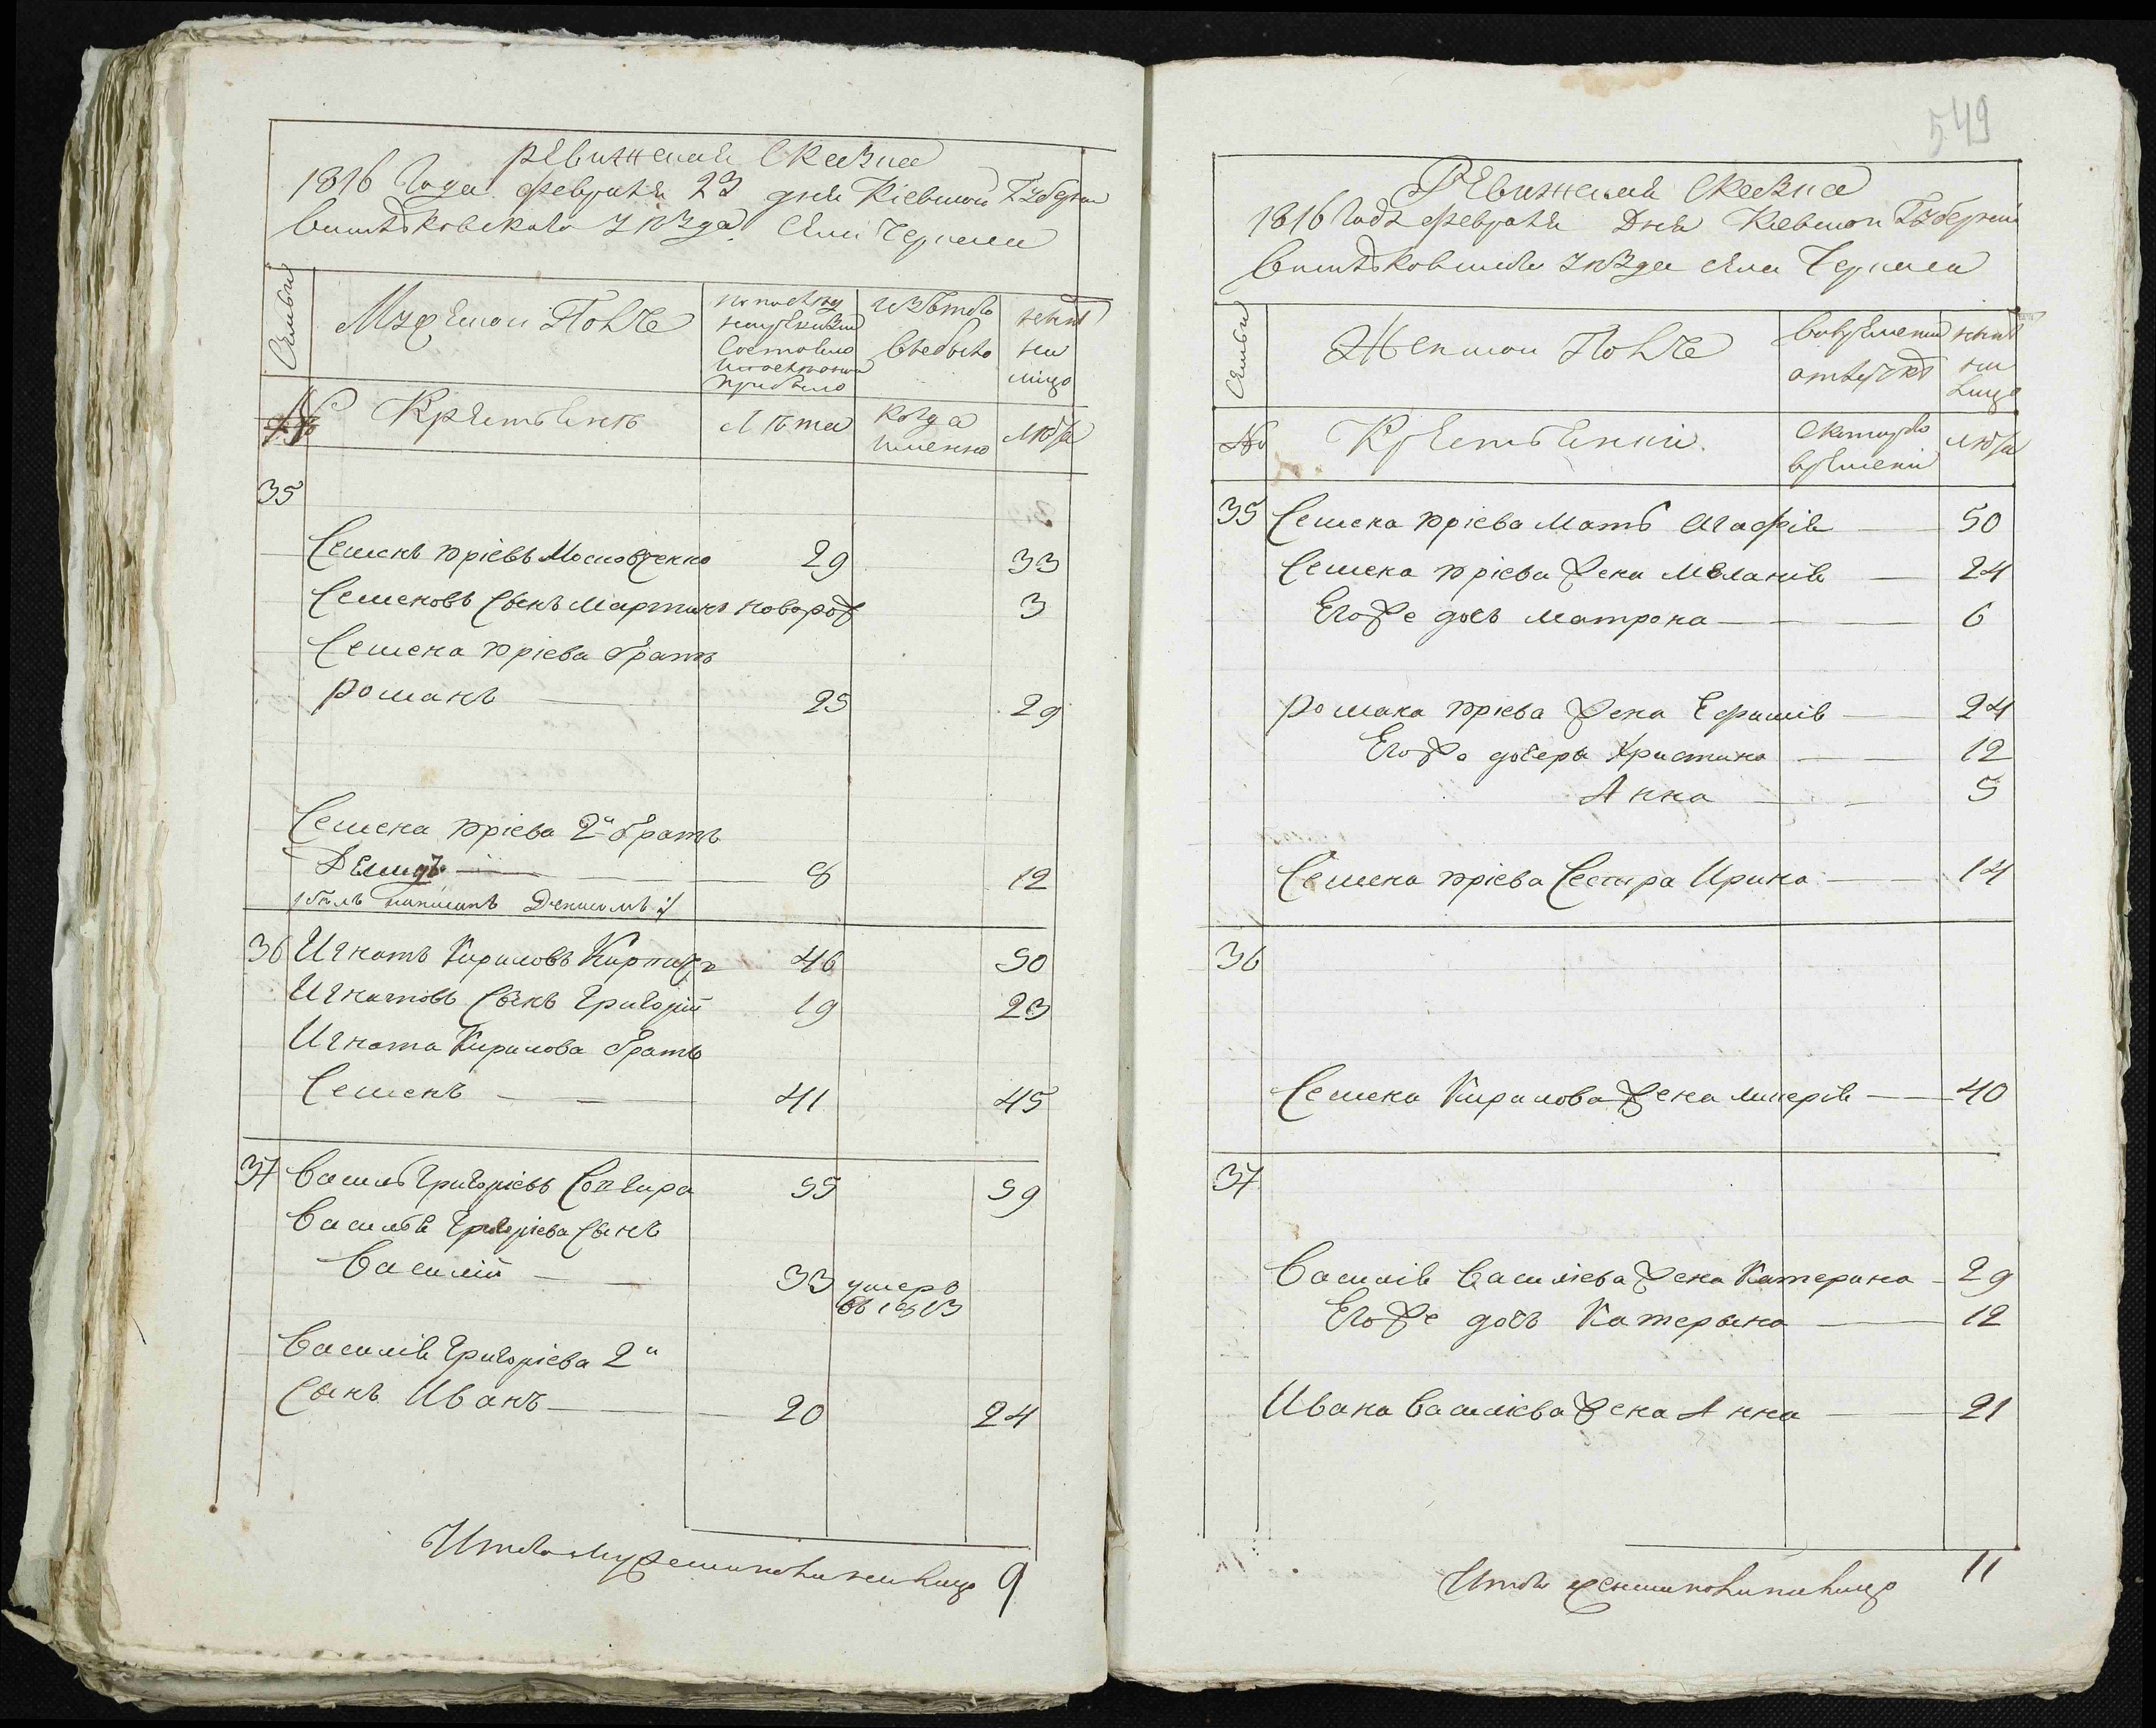 ревижская Сказка
1816 Года февраля 23 дня Кіевской Губерніи
Васильковскаго Уѣзда Села
Семьи
Мужескои Полъ
по последней
ревизіи
Состояло
и после того
прибыло
изъ того
Выбыло
ныне
на
лицо
№ Крестьянъ
Лѣта
когда
именно
лѣта
35
Семенъ Юріевъ Московченко 29 33
Семеновъ Сынъ Мартинъ новорож 3
Семена Юріева братъ
романъ 25 29
Семена Юріева 2й братъ
Демидъ 8 12
написанъ Денисомъ
36 Игнатъ Кириловъ 46 50
Игнатовъ Сынъ Григорій 19 23
Игната Кирилова братъ
Семенъ 41 45
37 Василь Григоріевъ 55 59
Василья Григоріева Сынъ
Василій 33 умеръ
въ 1813
Василія Григоріева 2й
Сынъ Иванъ 20 24
Итого мужеска пола на лицо 9
549
Ревижская Сказка
1816 Года февраля Дня Кіевской Губерніи
Васильковскаго Уѣзда села
Семьи
Женскои Полъ
Во временной
отлучкѣ
ныне
на
лицо
№ Крестьянки
Скотораго
времени
лѣта
35 Семена Юріева Мать Агафія 50
Семена Юріева жена Меланія 24
Егоже дочь Матрона 6
романа Юріева жена Ефимія 24
Егоже дочери Христина 12
Анна 5
Семена Юріева Сестра Ирина 14
36
Семена Кирилова жена 40
37
Василія Васильева жена Катерина 29
Егоже дочь Катерына 12
Ивана Василіева жена Анна 21
Итого женска пола на лицо 11